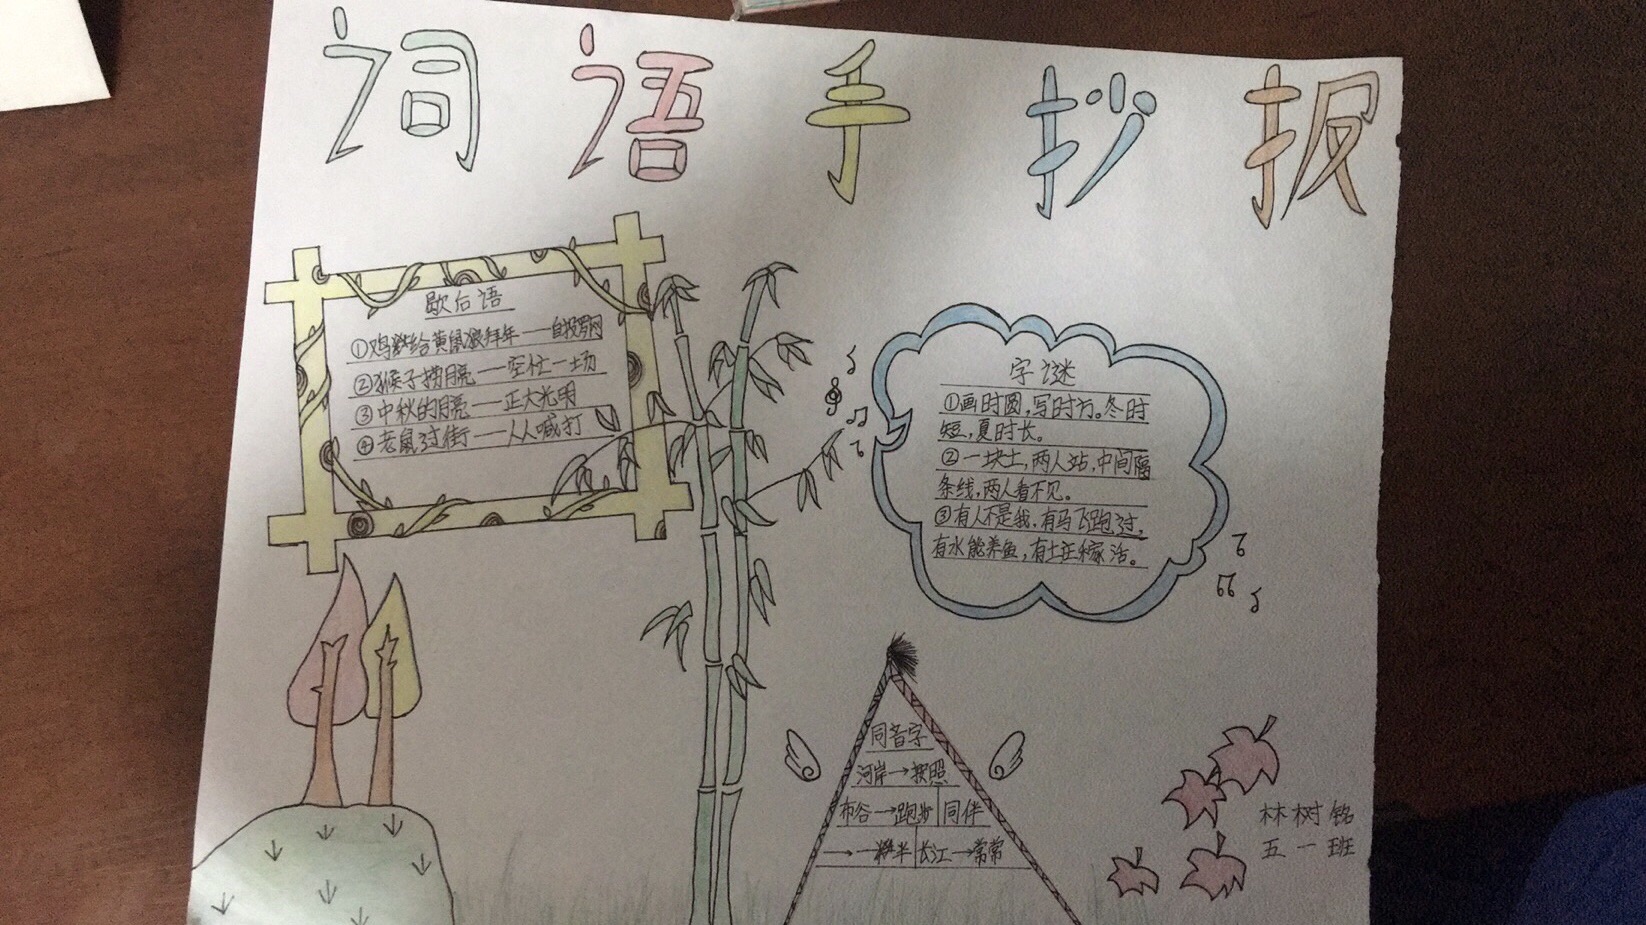 词语手抄报
歇后语
①鸡给黄鼠狼拜年——自投罗网
②猴子捞月亮——空忙一场
③中秋的月亮——正大光明
④老鼠过街——人人喊打
字谜
①画时圆，写时方。冬时
短，夏时长。
②一块土，两人站，中间隔
条线，两人看不见。
③有人不是我，有马飞跑过，
有水能养鱼，有土庄稼活。
同音字
河岸→按照
布谷→跑步|同伴
→一半|长江→常常
林树铭
五一班